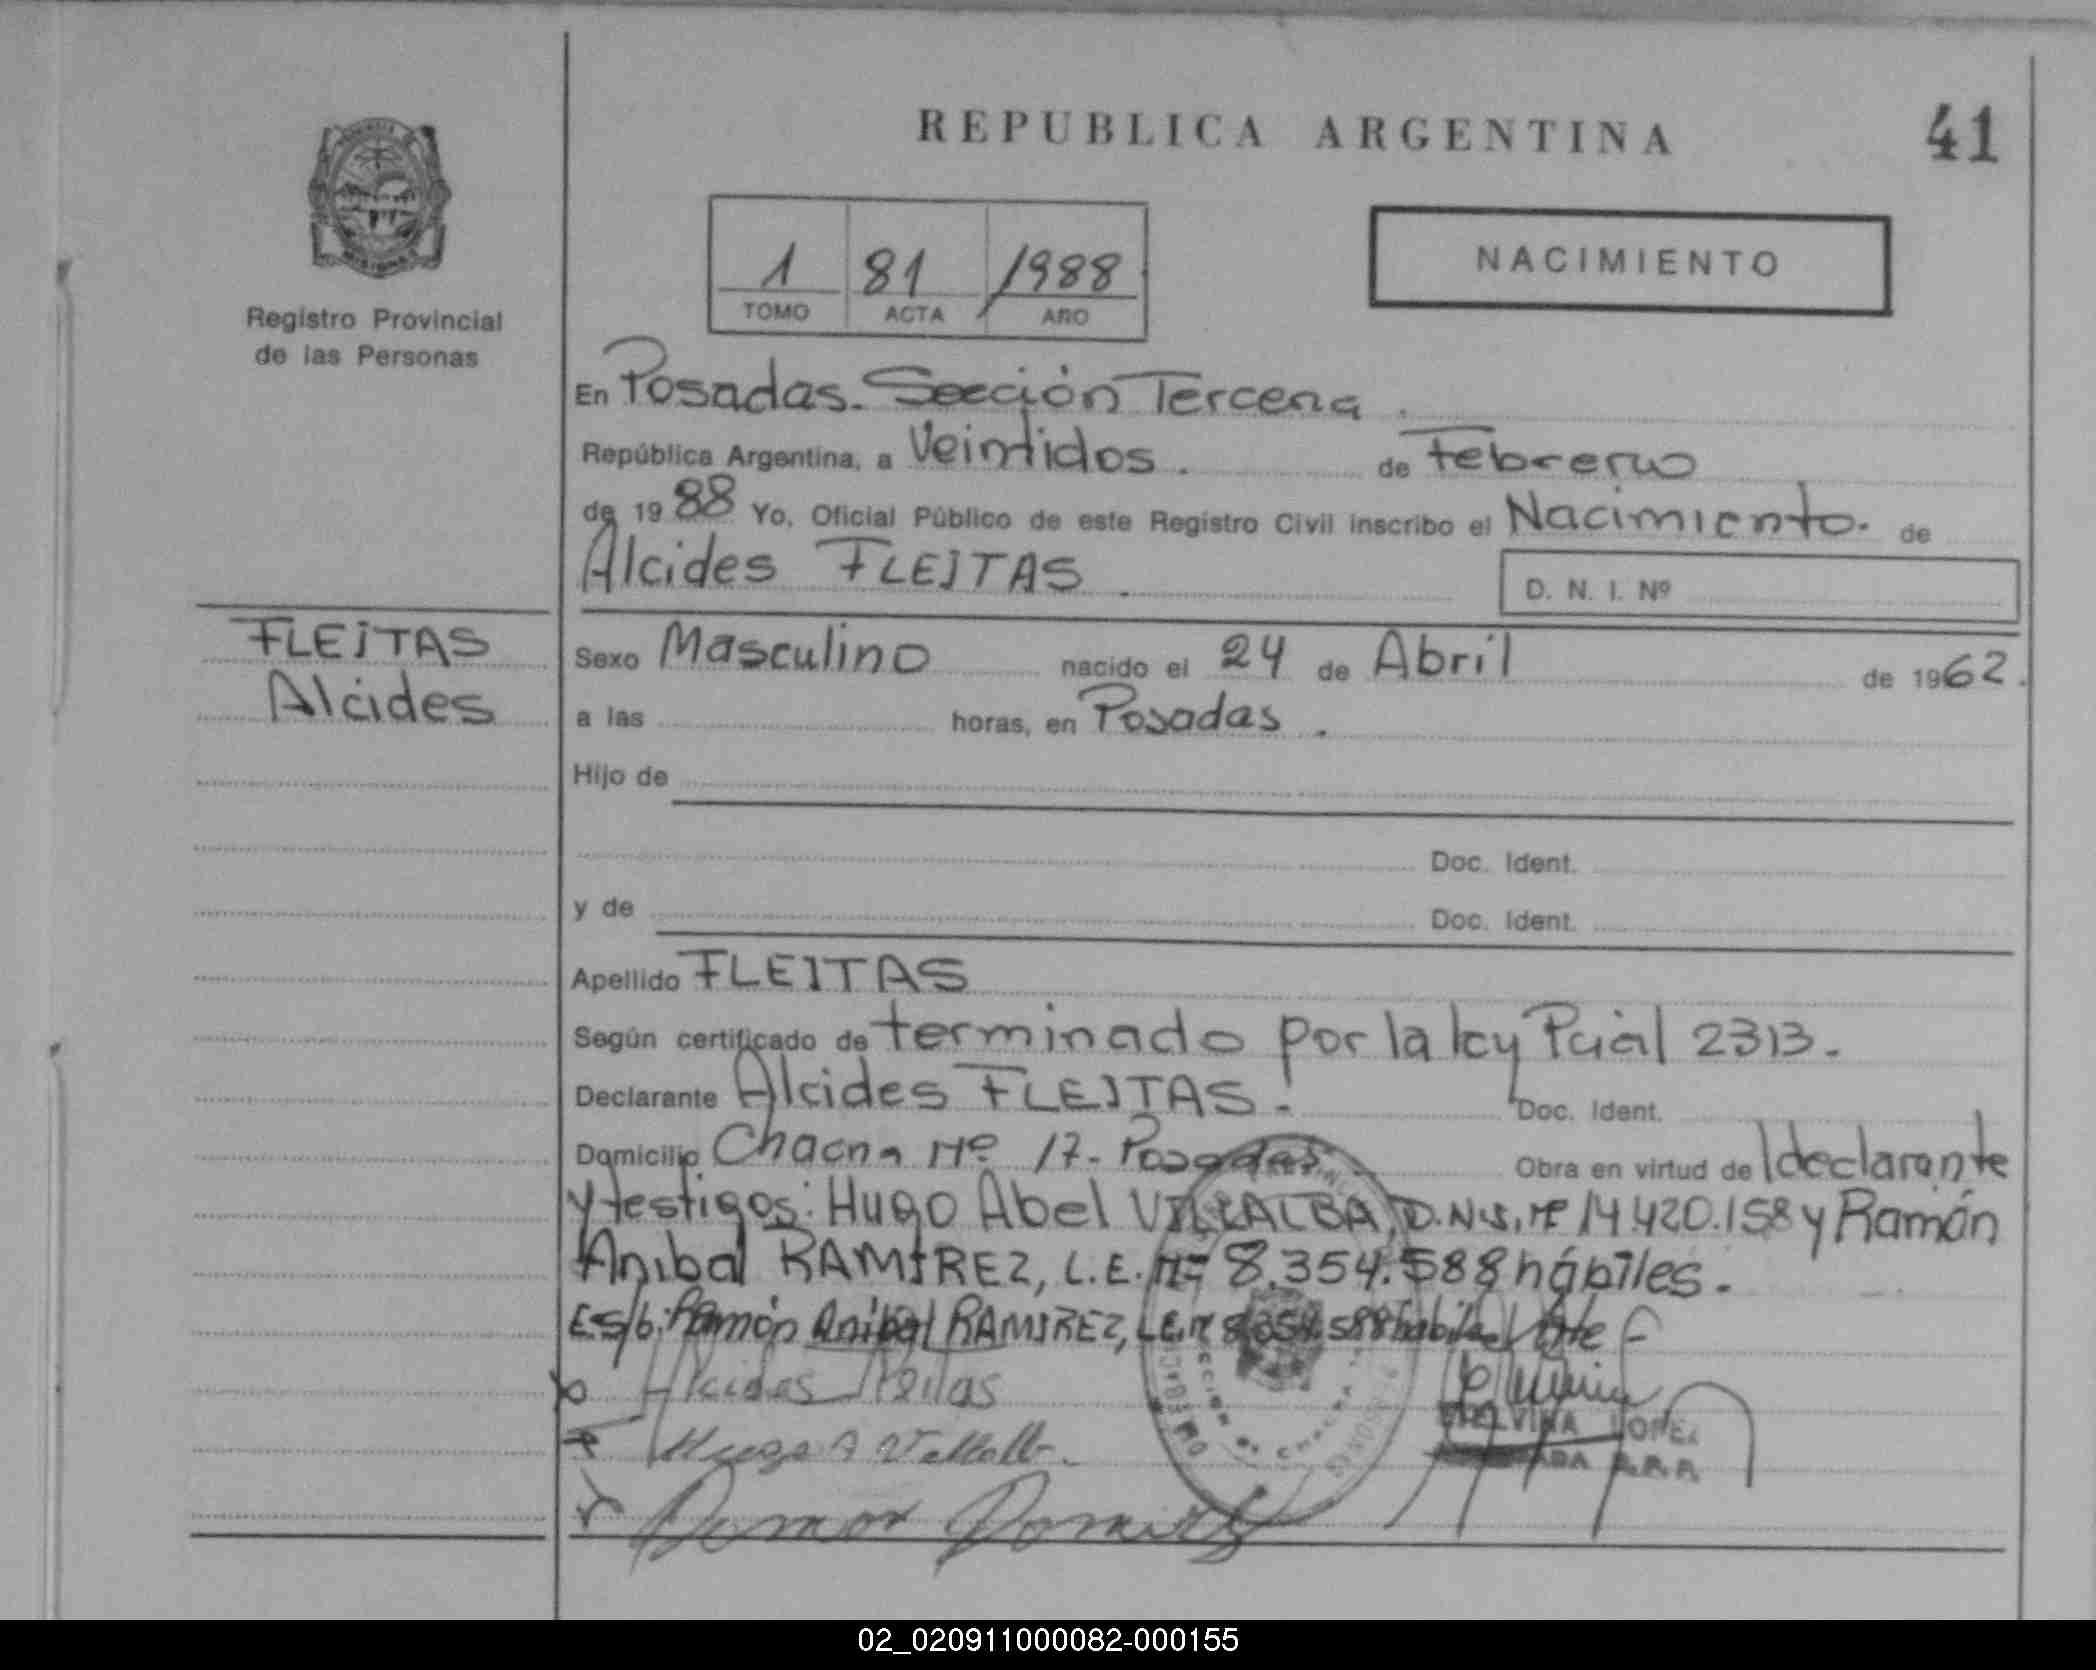 REPUBLICA ARGENTINA
41
Registro Provincial
de las Personas
1 81 1988
TOMO ACTA AÑO
NACIMIENTO
En Posadas. Sección Tercera.
República Argentina, a Veintidos. de Febrero
de 1988 Yo, Oficial Público de este Registro Civil inscribo el Nacimiento. de
Alcides FLEITAS.
D. N. I. Nº
FLEITAS
Alcides
Sexo Masculino nacido el 24 de Abril de 1962.
a las horas, en Posadas.
Hijo de
Doc. Ident.
y de Doc. Ident.
Apellido FLEITAS
Según certificado de terminado por la ley Pcial 2313.
Declarante Alcides FLEITAS. Doc. Ident.
Domicilio Chacra Nº 17. Posadas. Obra en virtud de declarante
y testigos: Hugo Abel VILLALBA, D.N.I. Nº 14.420.158 y Ramón
Anibal RAMIREZ, L.E. Nº 8.354.588 hábiles.
Es/b: Ramón Anibal RAMIREZ, L.E. Nº 8.354.588 habiles Vale
Alcides Fleitas
Hugo A Villalba
Ramon Ramirez
LOPEZ
02_020911000082-000155